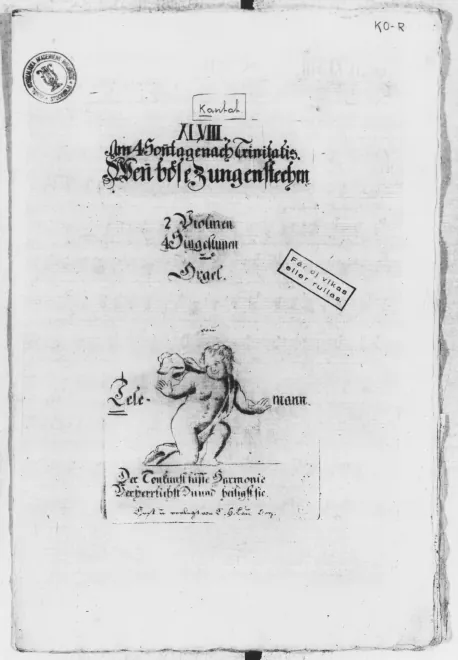 KO-R
Kantat
XLVIII.
Am 4 Sonntage nach Trinitatis.
Wen̄ böse Zungen stechen
2 Violinen
4 Singestimen
Orgel.
von
Tele- mann.
Får ej vikas
eller rullas.
Der Tonkunst süsse Harmonie
Verherrlichst Du und heiligst sie.